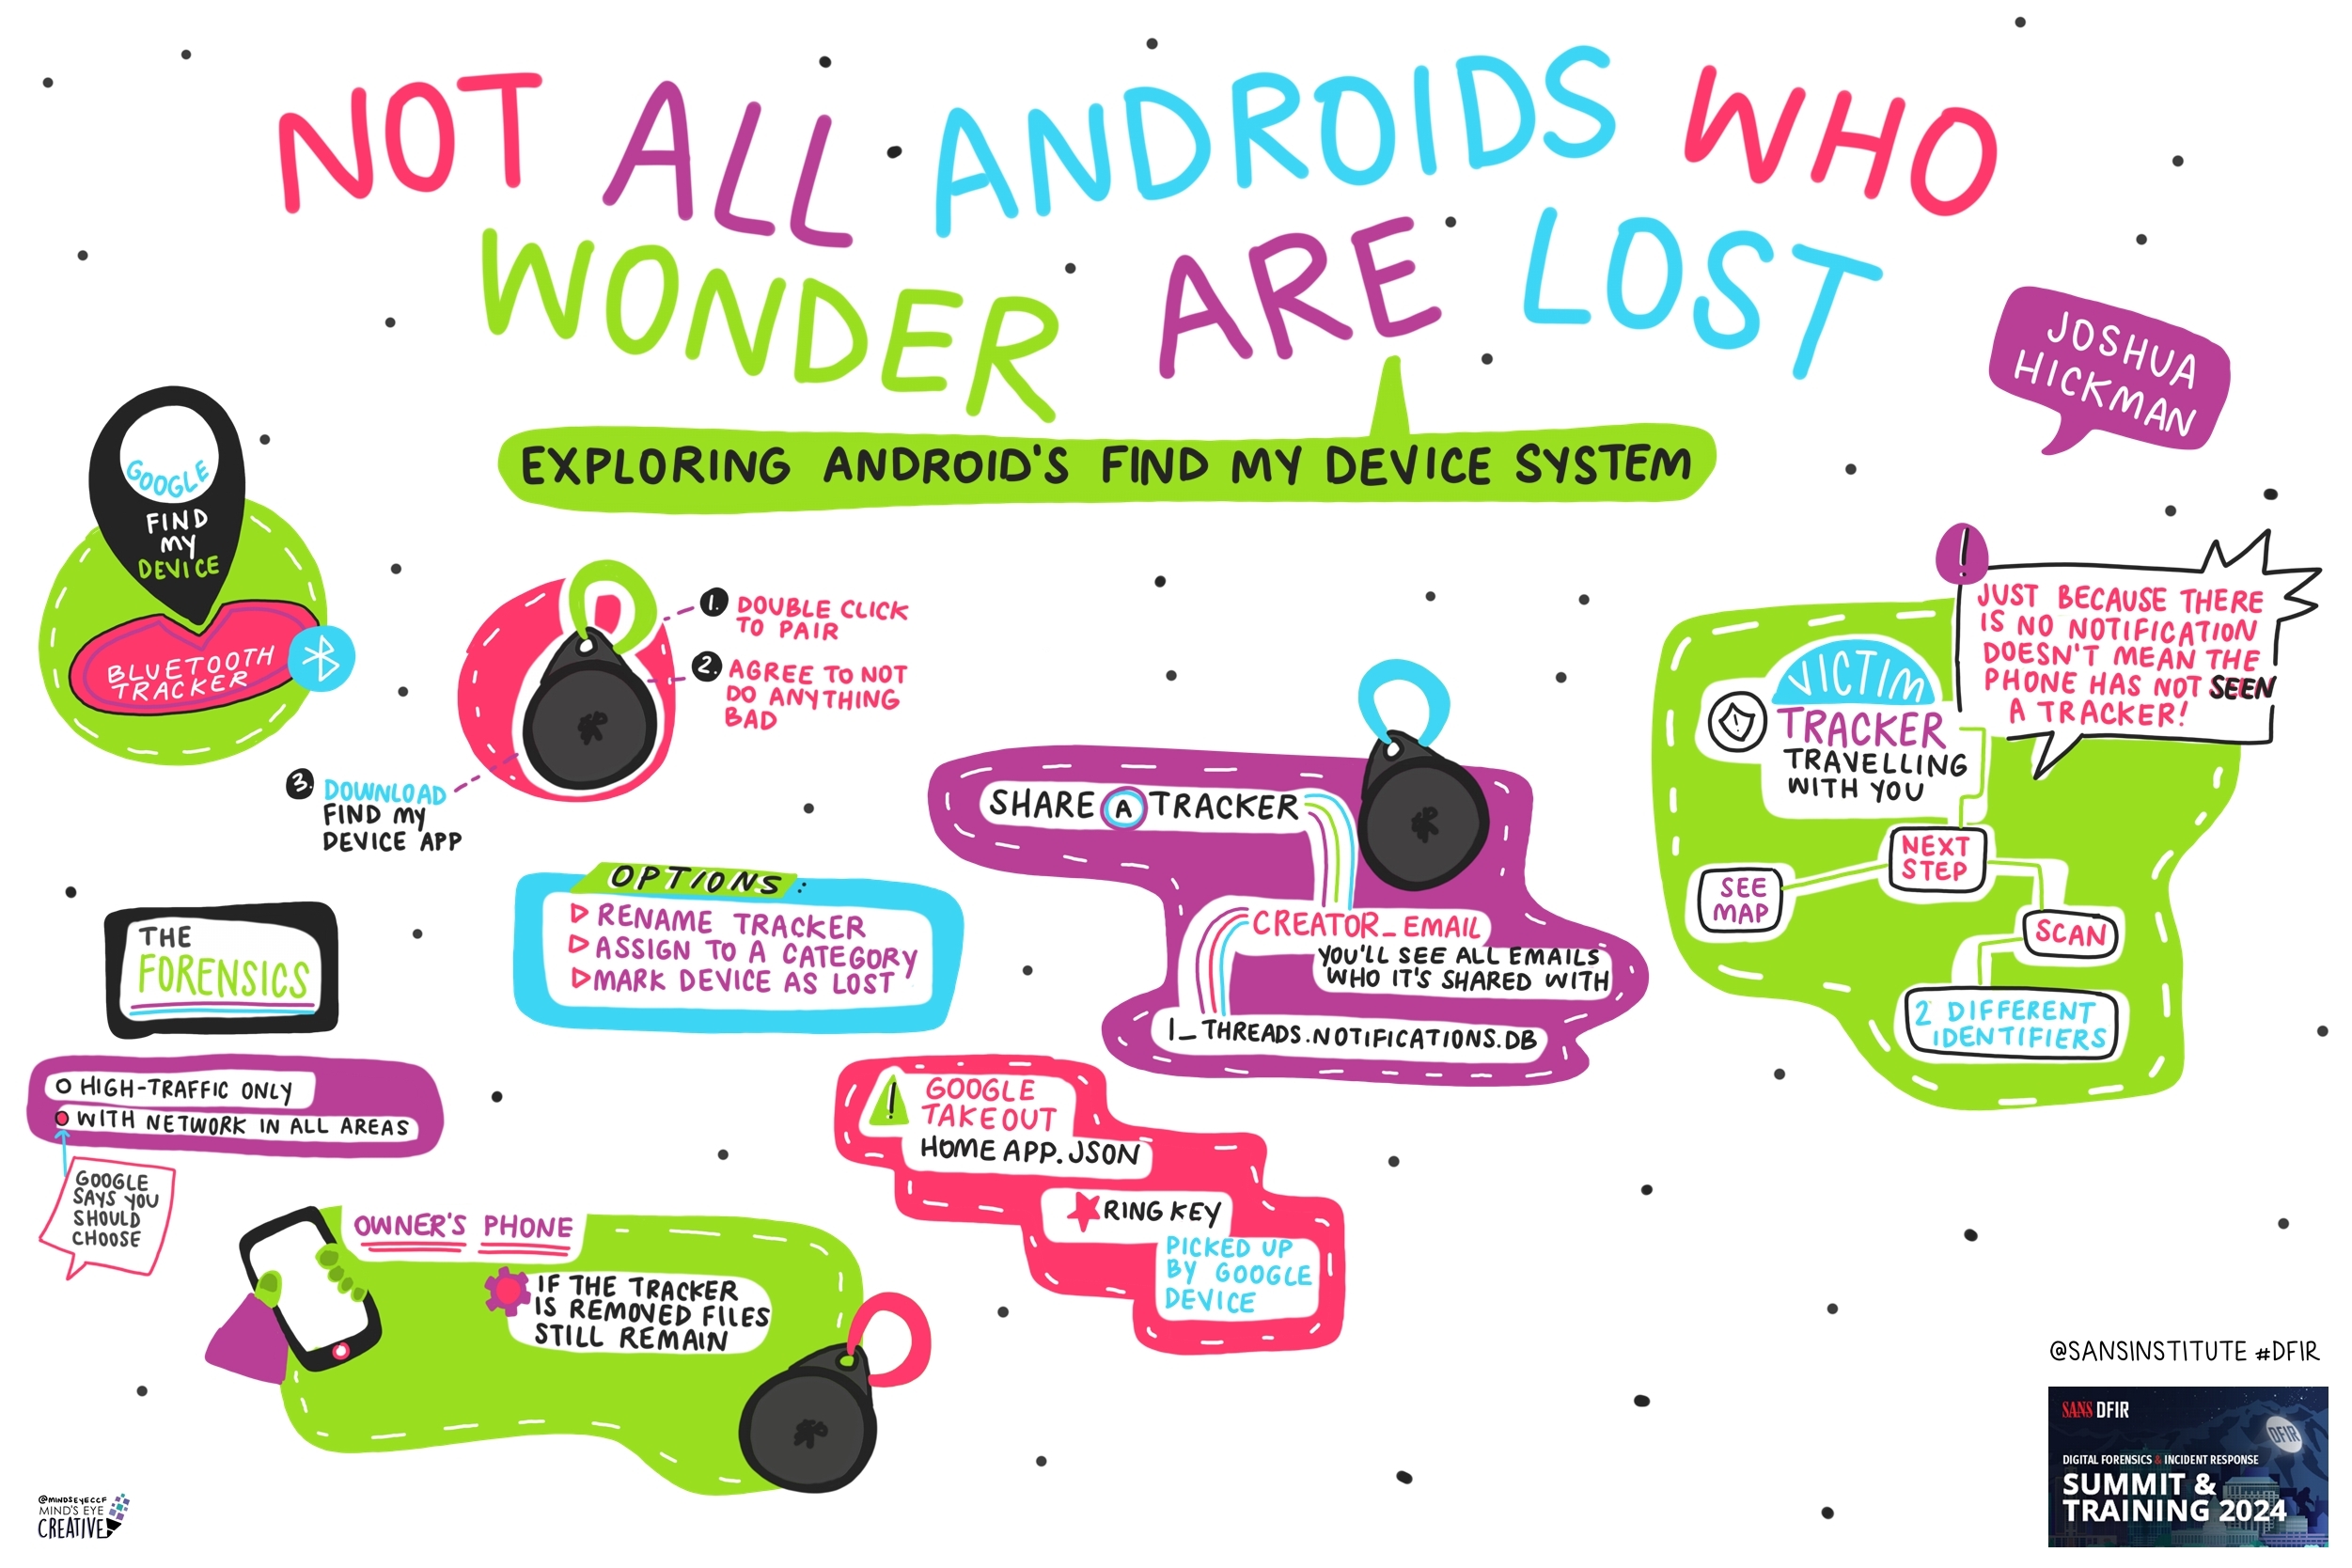 NOT ALL ANDROIDS WHO
WONDER ARE LOST
EXPLORING ANDROID'S FIND MY DEVICE SYSTEM
JOSHUA
HICKMAN
GOOGLE
FIND
MY
DEVICE
BLUETOOTH
TRACKER
1. DOUBLE CLICK
TO PAIR
2. AGREE TO NOT
DO ANYTHING
BAD
3. DOWNLOAD
FIND MY
DEVICE APP
OPTIONS:
RENAME TRACKER
ASSIGN TO A CATEGORY
MARK DEVICE AS LOST
SHARE A TRACKER
CREATOR_EMAIL
YOU'LL SEE ALL EMAILS
WHO IT'S SHARED WITH
1_THREADS.NOTIFICATIONS.DB
!
JUST BECAUSE THERE
IS NO NOTIFICATION
DOESN'T MEAN THE
PHONE HAS NOT SEEN
A TRACKER!
VICTIM
!
TRACKER
TRAVELLING
WITH YOU
NEXT
STEP
SEE
MAP
SCAN
2 DIFFERENT
IDENTIFIERS
THE
FORENSICS
HIGH-TRAFFIC ONLY
WITH NETWORK IN ALL AREAS
GOOGLE
SAYS YOU
SHOULD
CHOOSE
OWNER'S PHONE
IF THE TRACKER
IS REMOVED FILES
STILL REMAIN
!
GOOGLE
TAKEOUT
HOME APP.JSON
RING KEY
PICKED UP
BY GOOGLE
DEVICE
@SANSINSTITUTE #DFIR
SANS DFIR
DFIR
DIGITAL FORENSICS & INCIDENT RESPONSE
SUMMIT &
TRAINING 2024
@MINDSEYECCF
MIND'S EYE
CREATIVE